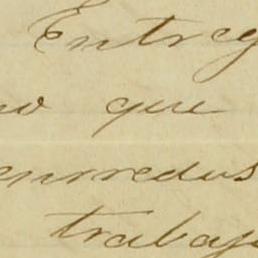 Entreg
no que
enrredus
trabaj